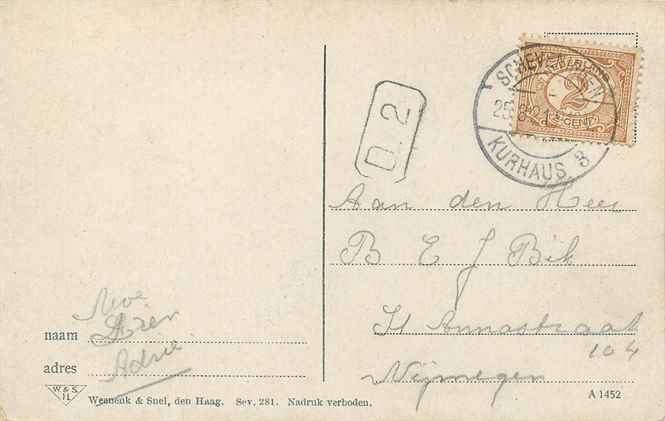 SCHEVENINGEN
25.8
KURHAUS 8
2
CENT
D. 2
Aan den Heer
B E J Bik
St Annastraat
104
Nijmegen
naam
adres
Adrie
W & S.
Weenenk & Snel, den Haag. Sev. 281. Nadruk verboden.
A 1452